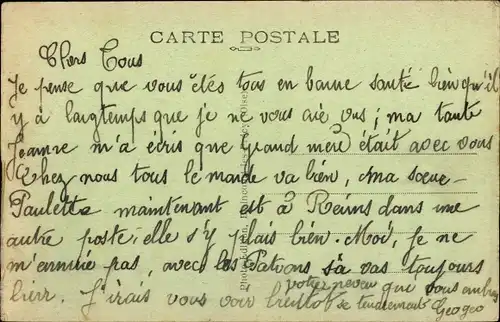 CARTE POSTALE
Chers Tous
Je pense que vous êtes tous en bonne santé bien qu'il
y a longtemps que je ne vous aie vus ; ma tante
Jeanne m'a écris que Grand mère était avec vous
Chez nous tous le monde va bien, Ma soeur
Paulette maintenant est à Reims dans une
autre poste, elle s'y plais bien. Moi, je ne
m'ennuie pas, avec les Patrons sa vas toujours
bien. J'irais vous voir bientot
votre neveu que vous embras
se tendrement Geogeo